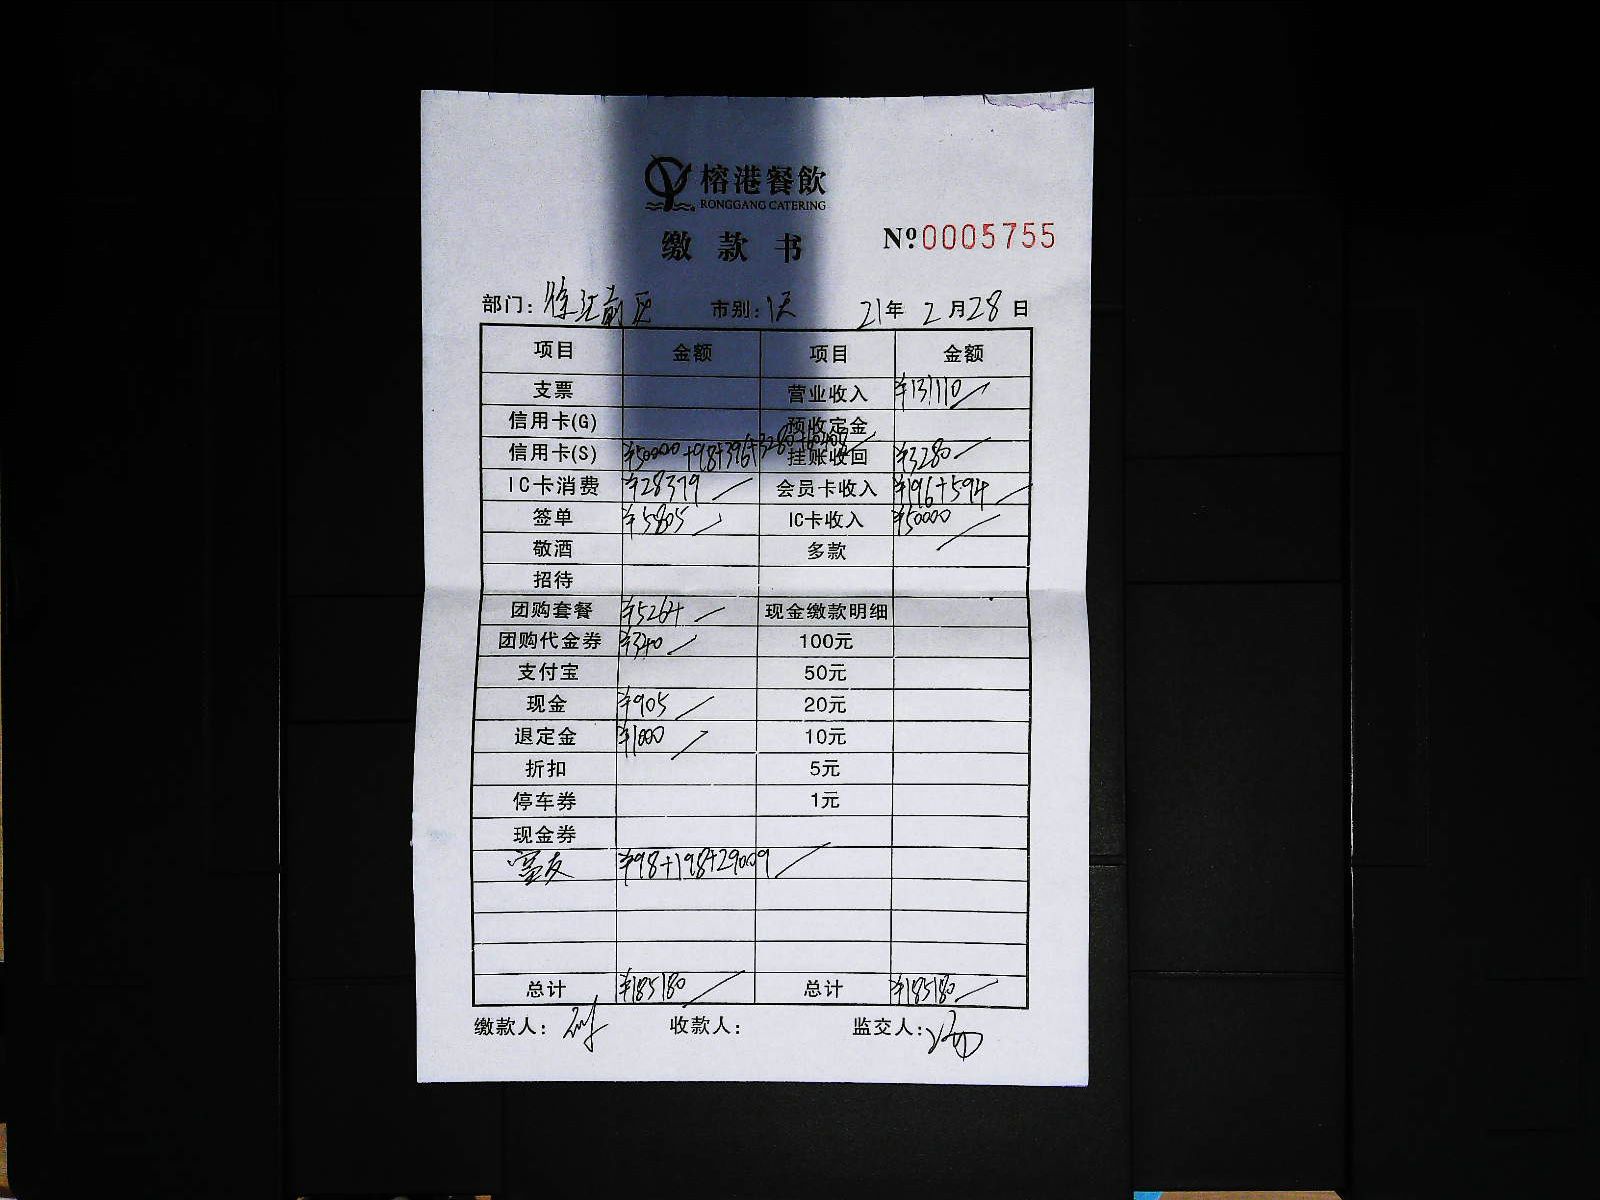 榕港餐飲
RONGGANG CATERING
缴款书
Nº0005755
部门: 徐汇前区 市别: 1天 21年 2月28日
项目 金额 项目 金额
支票 营业收入 ¥131110
信用卡(G) 预收定金
信用卡(S) ¥50000+98+396+3280+60408 挂账收回 ¥3280
IC卡消费 ¥28379 会员卡收入 ¥196+594
签单 ¥5805 IC卡收入 ¥50000
敬酒 多款
招待
团购套餐 ¥5264 现金缴款明细
团购代金券 ¥340 100元
支付宝 50元
现金 ¥905 20元
退定金 ¥1000 10元
折扣 5元
停车券 1元
现金券
¥98+198+29009
总计 ¥185180 总计 ¥185180
缴款人: 收款人: 监交人: